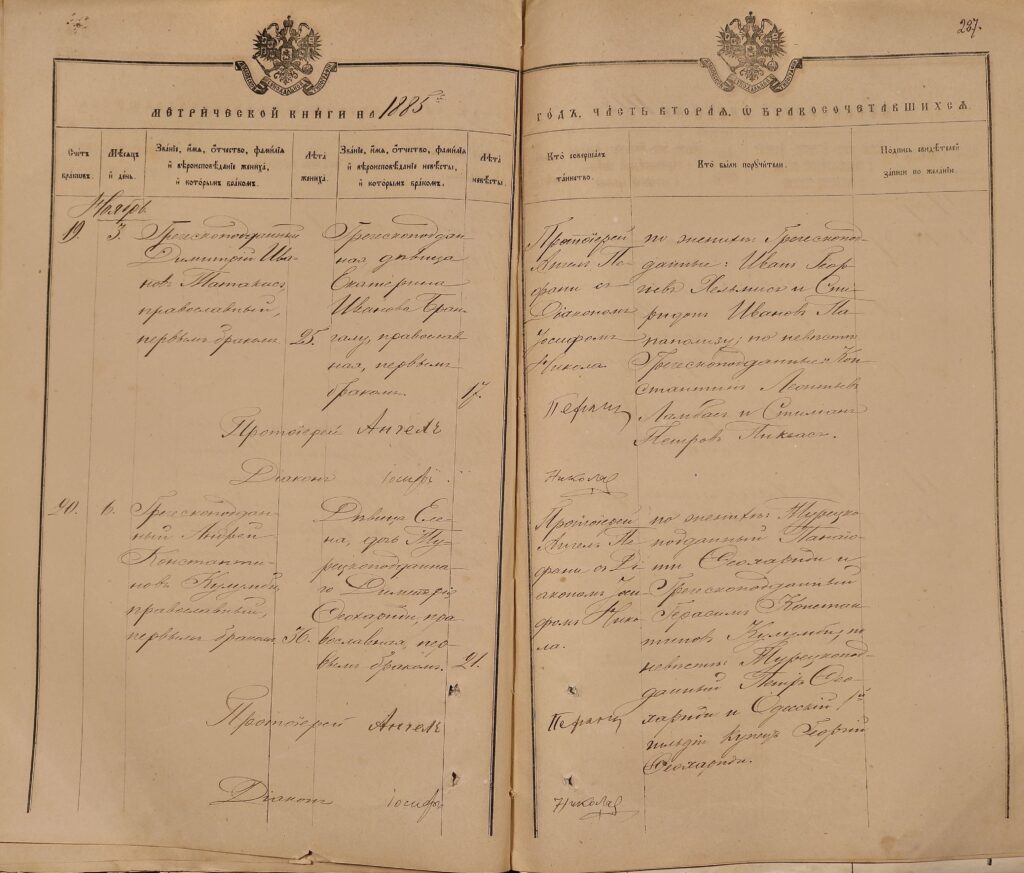 237.
МЕТРИЧЕСКОЙ КНИГИ НА 1885й
ГОДЪ, ЧАСТЬ ВТОРАЯ, Ѡ БРАКОСОЧЕТАВШИХСЯ
Счетъ браковъ.
Мѣсяцъ и день.
Званіе, имя, отчество, фамилія и вѣроисповѣданіе жениха, и которымъ бракомъ.
Лѣта жениха.
Званіе, имя, отчество, фамилія и вѣроисповѣданіе невѣсты, и которымъ бракомъ.
Лѣта невѣсты.
Кто совершалъ таинство.
Кто были поручители.
Подпись свидѣтелей записи по желанію.
Ноябрь
19. 3.
Греческоподданный
Димитрій Ива-
новъ Татакисъ,
православный,
первымъ бракомъ
25.
Греческоподдан-
ная дѣвица
Екатерина
Иванова
православ-
ная, первымъ
бракомъ.
17.
Протоіерей
Ангелъ Пе-
рани съ
Діакономъ
Іосифомъ
Никола
по женихѣ: Греческопод-
данные: Иванъ Геор-
гіевъ Хельмисъ и Спи-
ридонъ Ивановъ Па-
по невѣстѣ
Греческоподданные Кон-
стантинъ Леонтьевъ
Ламбасъ и
Петровъ
Протоіерей Ангелъ
Перани
Діаконъ Іосифъ
Никола
20. 6.
Греческоподдан-
ный Андрей
Константи-
новъ Кулумби,
православный,
первымъ бракомъ
36.
Дѣвица Еле-
на, дочь Ту-
рецкоподданна-
го Димитрія
Ѳеохариди, пра-
вославная, пер-
вымъ бракомъ.
21.
Протоіерей
Ангелъ Пе-
рани съ Ді-
акономъ Іоси-
фомъ Нико-
ла.
по женихѣ: Турецко-
подданный Панаіо-
ти Ѳеохариди и
Греческоподданный
Герасимъ Констан-
тиновъ Кулумби; по
невѣстѣ: Турецкопод-
данный Петръ Ѳео-
хариди и Одесскій 1й
гильдіи купецъ Георгій
Ѳеохариди.
Протоіерей Ангелъ
Перани
Діаконъ Іосифъ
Никола